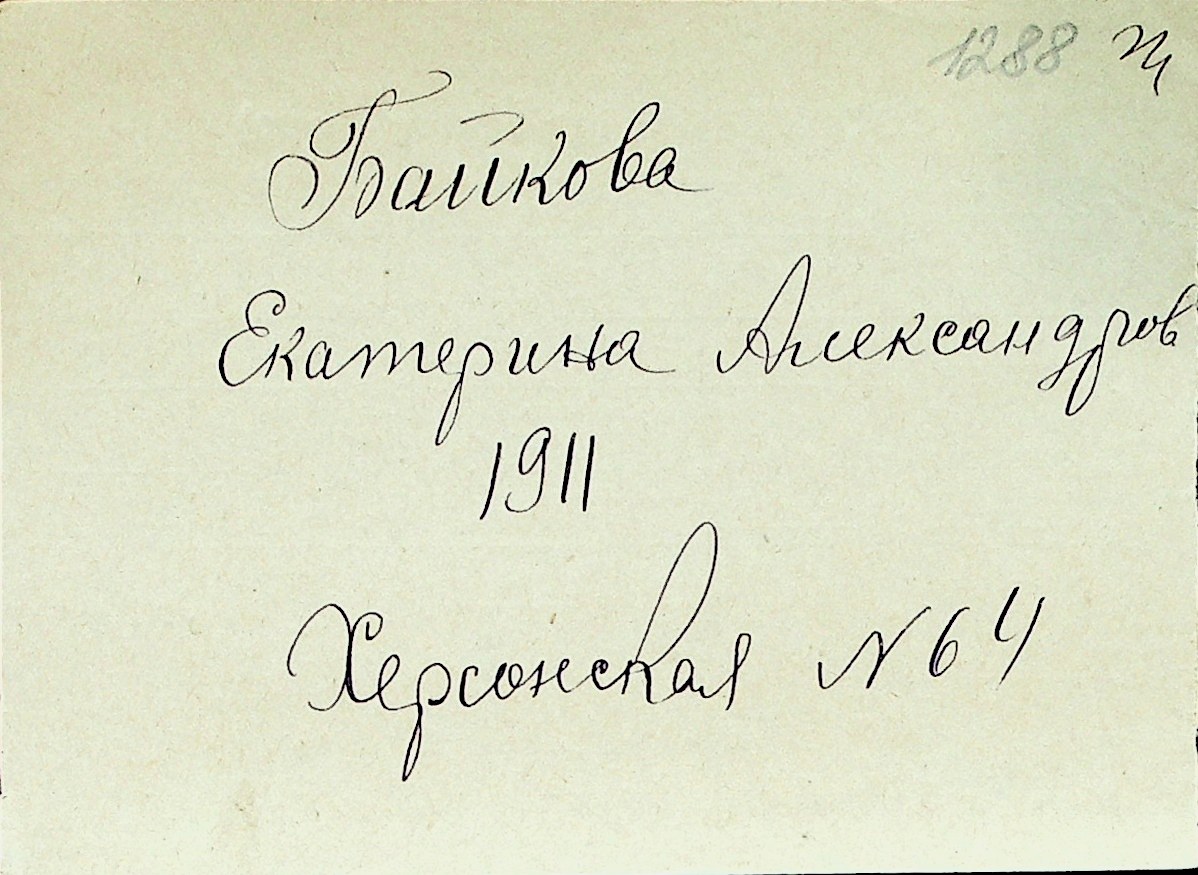 1288
Байкова
Екатерина Александров
1911
Херсонская N 64